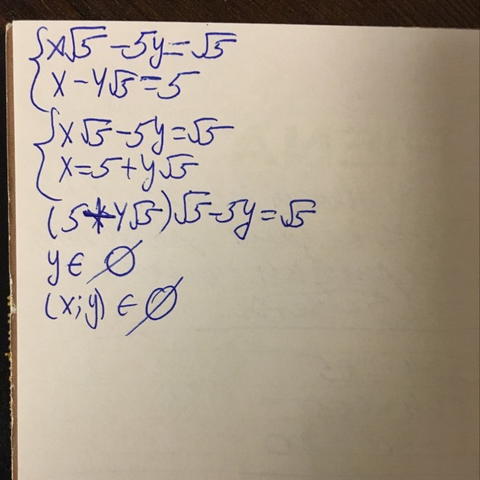 {x√5 - 5y = √5
{x - y√5 = 5
{x√5 - 5y = √5
{x = 5 + y√5
(5 + y√5)√5 - 5y = √5
y ∈ ∅
(x; y) ∈ ∅